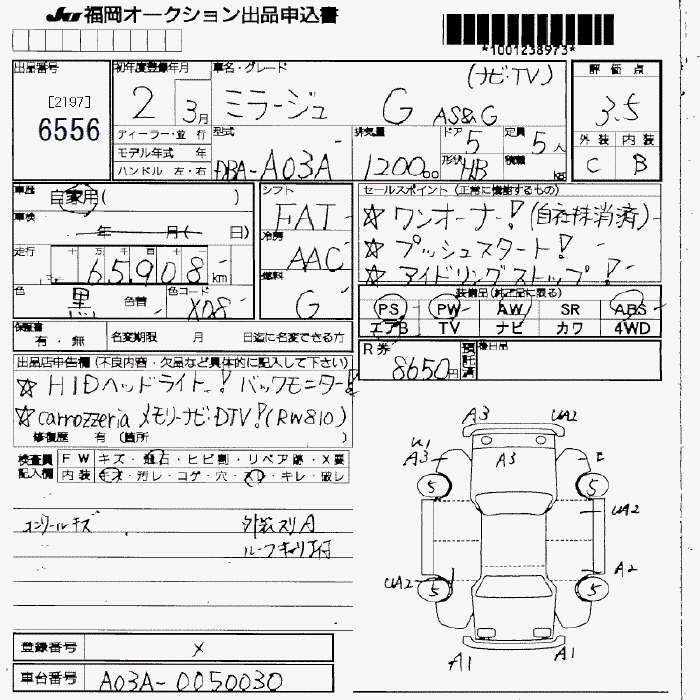 JU 福岡オークション出品申込書
*1001238973*
出品番号
[2197]
6556
初年度登録年月
2 3月
車名・グレード
(ナビ・TV)
ミラージュ G AS&G
評価点
3.5
外装 内装
C B
ディーラー・並行
モデル年式 年
ハンドル 左・右
型式
DBA-A03A
排気量
1200cc
ドア
5
形状
HB
定員
5人
積載
kg
車歴
自家用( )
車検
年 月( 日)
走行 十 万 千 百 十
65,908 km
色
黒
色替
色コード
X08
シフト
FAT
冷房
AAC
燃料
G
セールスポイント(正常に機能するもの)
☆ ワンオーナー!(自社抹消済)
☆ プッシュスタート!
☆ アイドリングストップ!
装備品(純正品に限る)
PS PW AW SR ABS
エアB TV ナビ カワ 4WD
保証書
有・無
名変期限 月 日迄に名変できる方
R券
8650円
預託済
後日品
出品店申告欄(不良内容・欠品など具体的に記入して下さい)
☆ HIDヘッドライト! バックモニター!
☆ carrozzeria メモリーナビ・DTV!(RW810)
修復歴 有(箇所 )
検査員記入欄
FW キズ・飛石・ヒビ割・リペア跡・X要
内装 キズ・剥レ・コゲ・穴・スレ・キレ・破レ
外装スリA
ルーフキャリア付
A3 UA2
U1
A3 A3 E
5 5
UA2
A2
UA2 5 5
A1 A1
登録番号 ×
車台番号 A03A-0050030